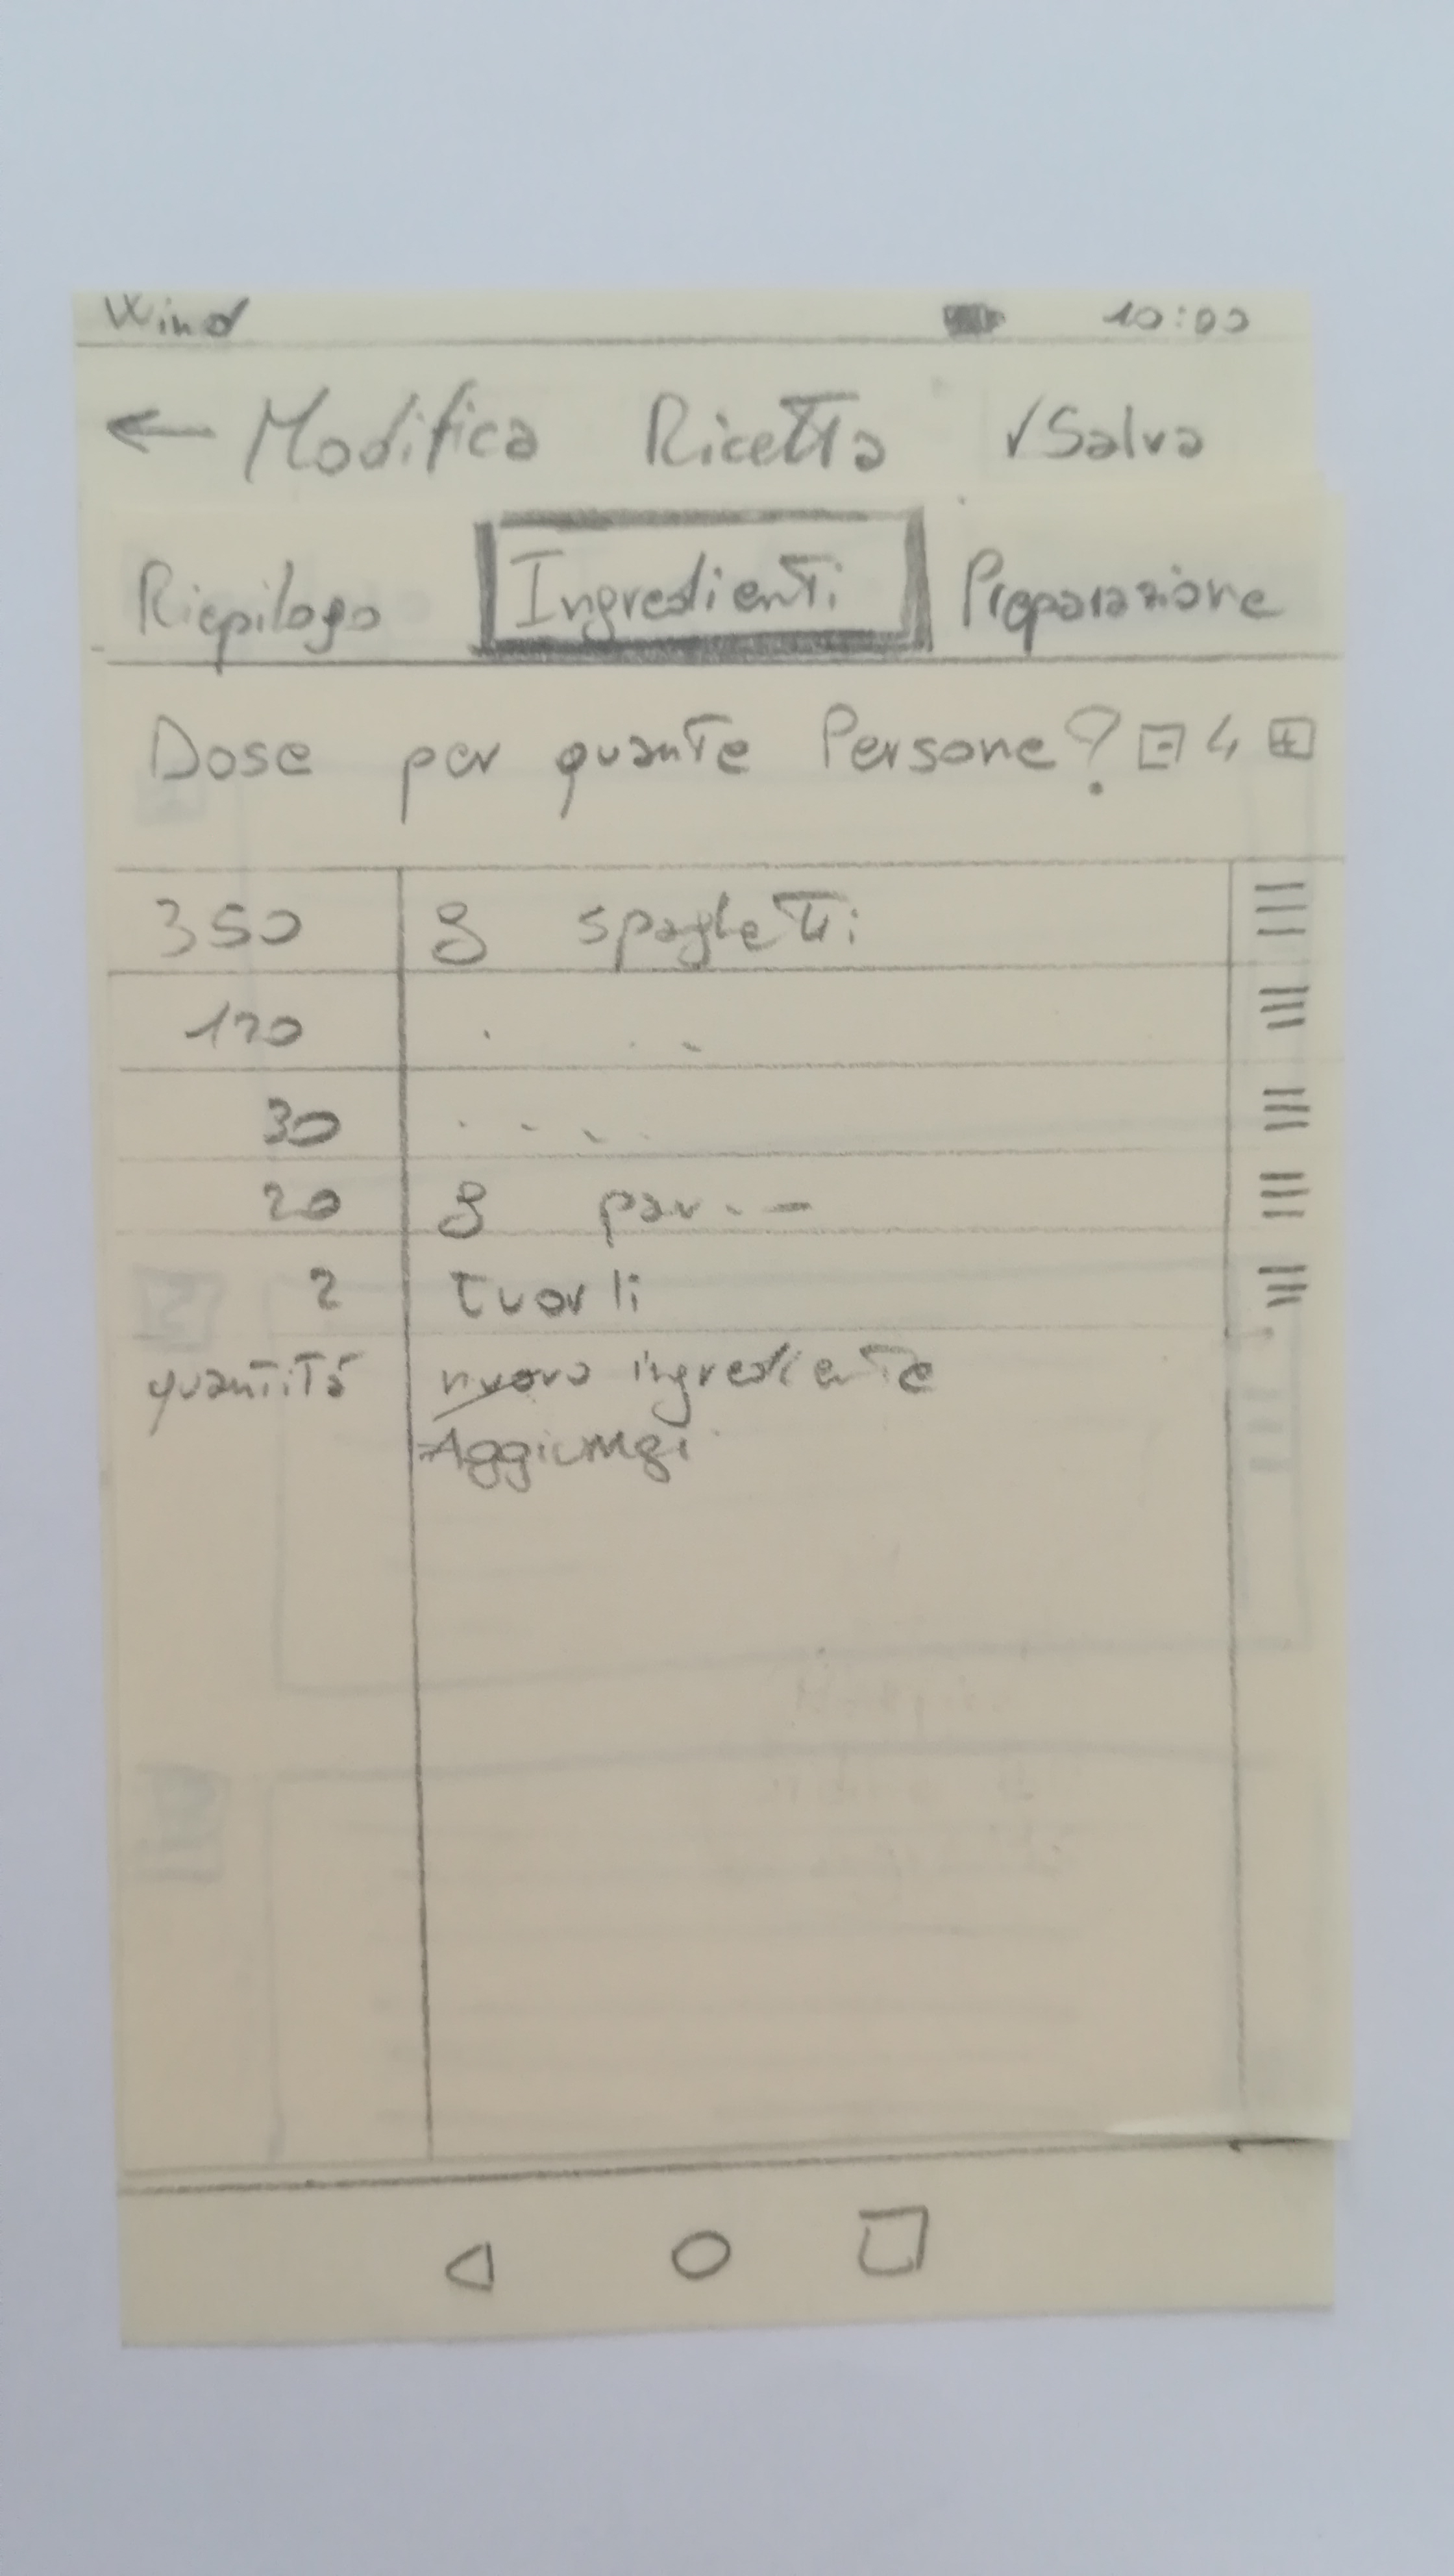 Wind 10:00
← Modifica Ricetta √Salva
Riepilogo Ingredienti Preparazione
Dose per quante Persone? - 4 +
350 g spaghetti
120 . . .
30 . . . .
20 g par. . -
2 tuorli
quantità nuovo ingrediente
Aggiungi